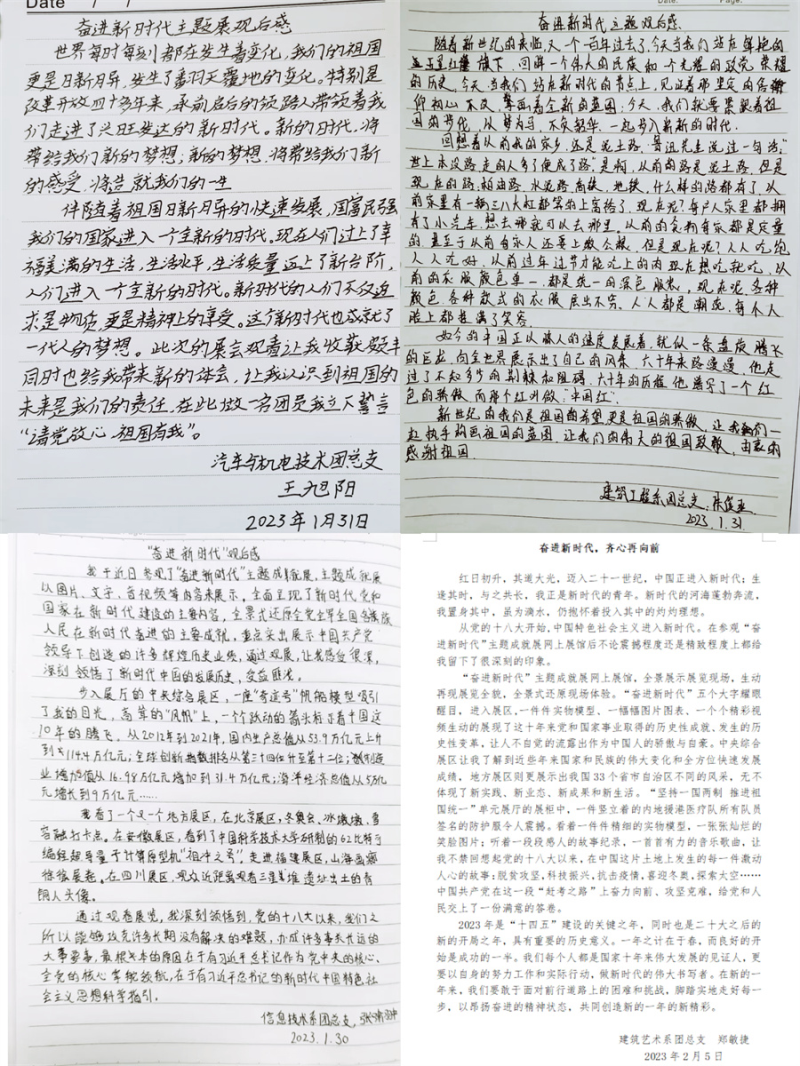 Date / /
奋进新时代主题展观后感
世界每时每刻都在发生着变化，我们的祖国
更是日新月异，发生了翻天覆地的变化。特别是
改革开放四十多年来，承前启后的领路人带领着我
们走进了兴旺发达的新时代。新的时代，将
带给我们新的梦想；新的梦想，将带给我们新
的感受，将造就我们的一生
伴随着祖国日新月异的快速发展，国富民强
我们的国家进入一个全新的时代。现在人们过上了幸
福美满的生活，生活水平，生活质量迈上了新台阶，
人们进入一个全新的时代。新时代的人们不仅追
求是物质，更是精神上的享受。这个新时代也成就了
一代人的梦想。此次的展会观看让我收获颇丰
同时也给我带来新的体会，让我认识到祖国的
未来是我们的责任，在此做一名团员我立下誓言
“请党放心 祖国有我”。
汽车与机电技术团总支
王旭阳
2023年1月31日
Date. Page.
奋进新时代主题观后感
随着新世纪的来临，又一个百年过去了，今天当我们站在鲜艳的
五星红旗旗下，回眸一个伟大的民族和一个光耀的政党荣耀
的历史，今天，当我们站在新时代的节点上，见证着那坚定的信
仰初心不改，擘画着全新的蓝图；今天，我们就要紧跟着祖
国的步伐，从梦为马，不负韶华，一起步入崭新的时代。
回想着从前我的家乡，还是泥土路，鲁迅先生说过一句话，
“世上本没路，走的人多了便成了路”，是啊，从前的路是泥土路，但是
现在的路，柏油路，水泥路，高铁，地铁，什么样的路都有了，从
前家里有一辆二八大杠都高的上高格了，现在呢？每户人家里都拥
有了小汽车，想去哪就可以去哪里，从前的食物有家都是定量
的，甚至于从前有家人还要上救公救，但是现在呢？人人吃饱
人人吃好，从前过年过节才能吃上的肉，现在想吃就吃，从
前的衣服颜色单一，都是统一的深色服装，现在呢，各种
颜色，各种款式的衣服层出不穷，人人都是潮流，每个人
脸上都挂满了笑容。
如今的中国正以惊人的速度发展着，就似一条盘旋腾飞
的巨龙，向全世界展示出了自己的风采，六十年来路漫漫，他走
过了不知多少的荆棘和阻碍，六十年的历程，他谱写了一个红
色的骄傲，而那个红叫做“中国红”。
新世纪的我们是祖国的希望更是祖国的骄傲，让我们一
起执手构画祖国的蓝图，让我们向伟大的祖国致敬，由衷的
感谢祖国。
建筑工程系团总支
2023.1.31
“奋进新时代”观后感
我于近日参观了“奋进新时代”主题成就展，主题成就展
以图片、文字、音视频等内容来展示，全面呈现了新时代党和
国家在新时代建设的主要内容，全景式还原全党全军全国各族
人民在新时代奋进的主要成就，重点突出展示中国共产党
领导下创造的许多辉煌历史业绩，通过观展，让我感触很深，
深刻领悟了新时代中国的发展历史，受益匪浅。
步入展厅的中央综合展区，一座“奋进号”帆船模型吸引
了我的目光，高耸的“风帆”上，一个个跃动的箭头标志着中国这
10年的腾飞。从2012年到2021年，国内生产总值从53.9万亿元上升
到114.4万亿元；全球创新指数排名从第三十四位升至第十二位；制造
业增加值从16.98万亿元增加到31.4万亿元；海洋经济总值从5万亿
元增长到9万亿元……
我看了一个又一个地方展区，在北京展区，冬奥会、冰墩墩、雪
容融打卡点。在安徽展区，看到了中国科学技术大学研制的62比特可
编程超导量子计算原型机“祖冲之号”，走进福建展区，山海画廊
徐徐展卷。在四川展区，观众近距离观看三星堆遗址出土的青
铜人头像。
通过观看展览，我深刻领悟到，党的十八大以来，我们之
所以能够攻克许多长期没有解决的难题，办成许多事关长远的
大事要事，最根本的原因在于有习近平总书记作为党中央的核心、
全党的核心掌舵领航，在于有习近平总书记的新时代中国特色社
会主义思想科学指引。
信息技术系团总支，
2023.1.30
奋进新时代，齐心再向前
红日初升，其道大光，迈入二十一世纪，中国正进入新时代；生
逢其时，与之共长，我正是新时代的青年。新时代的河海蓬勃奔流，
我置身其中，虽为滴水，仍抱怀着投入其中的灼灼理想。
从党的十八大开始，中国特色社会主义进入新时代。在参观“奋
进新时代”主题成就展网上展馆后不论震撼程度还是精致程度上都给
我留下了很深刻的印象。
“奋进新时代”主题成就展网上展馆，全景展示展览现场，生动
再现展览全貌，全景式还原现场体验。“奋进新时代”五个大字耀眼
醒目，进入展区，一件件实物模型、一幅幅图片图表、一个个精彩视
频生动的展现了这十年来党和国家事业取得的历史性成就、发生的历
史性变革，让人不自觉的流露出作为中国人的骄傲与自豪。中央综合
展区让我了解到近些年来国家和民族的伟大变化和全方位快速发展
成绩，地方展区则更展示出我国 33 个省市自治区不同的风采，无不
体现了新实践、新业态、新成果和新生活。“坚持一国两制 推进祖
国统一”单元展厅的展柜中，一件竖立着的内地援港医疗队所有队员
签名的防护服令人震撼。看着一件件精细的实物模型，一张张灿烂的
笑脸图片；听着一段段感人的故事纪录，一首首有力的音乐歌曲，让
我不禁回想起党的十八大以来，在中国这片土地上发生的每一件激动
人心的故事；脱贫攻坚，科技振兴，抗击疫情，喜迎冬奥，探索太空……
中国共产党在这一段“赶考之路”上奋力向前、攻坚克难，给党和人
民交上了一份满意的答卷。
2023 年是“十四五”建设的关键之年，同时也是二十大之后的
新的开局之年，具有重要的历史意义。一年之计在于春，而良好的开
始是成功的一半。我们每个人都是国家十年来伟大发展的见证人，更
要以自身的努力工作和实际行动，做新时代的伟大书写者。在新的一
年来，我们要敢于面对前行道路上的困难和挑战，脚踏实地走好每一
步，以昂扬奋进的精神状态，共同创造新的一年的新精彩。
建筑艺术系团总支 郑敏捷
2023 年 2 月 5 日